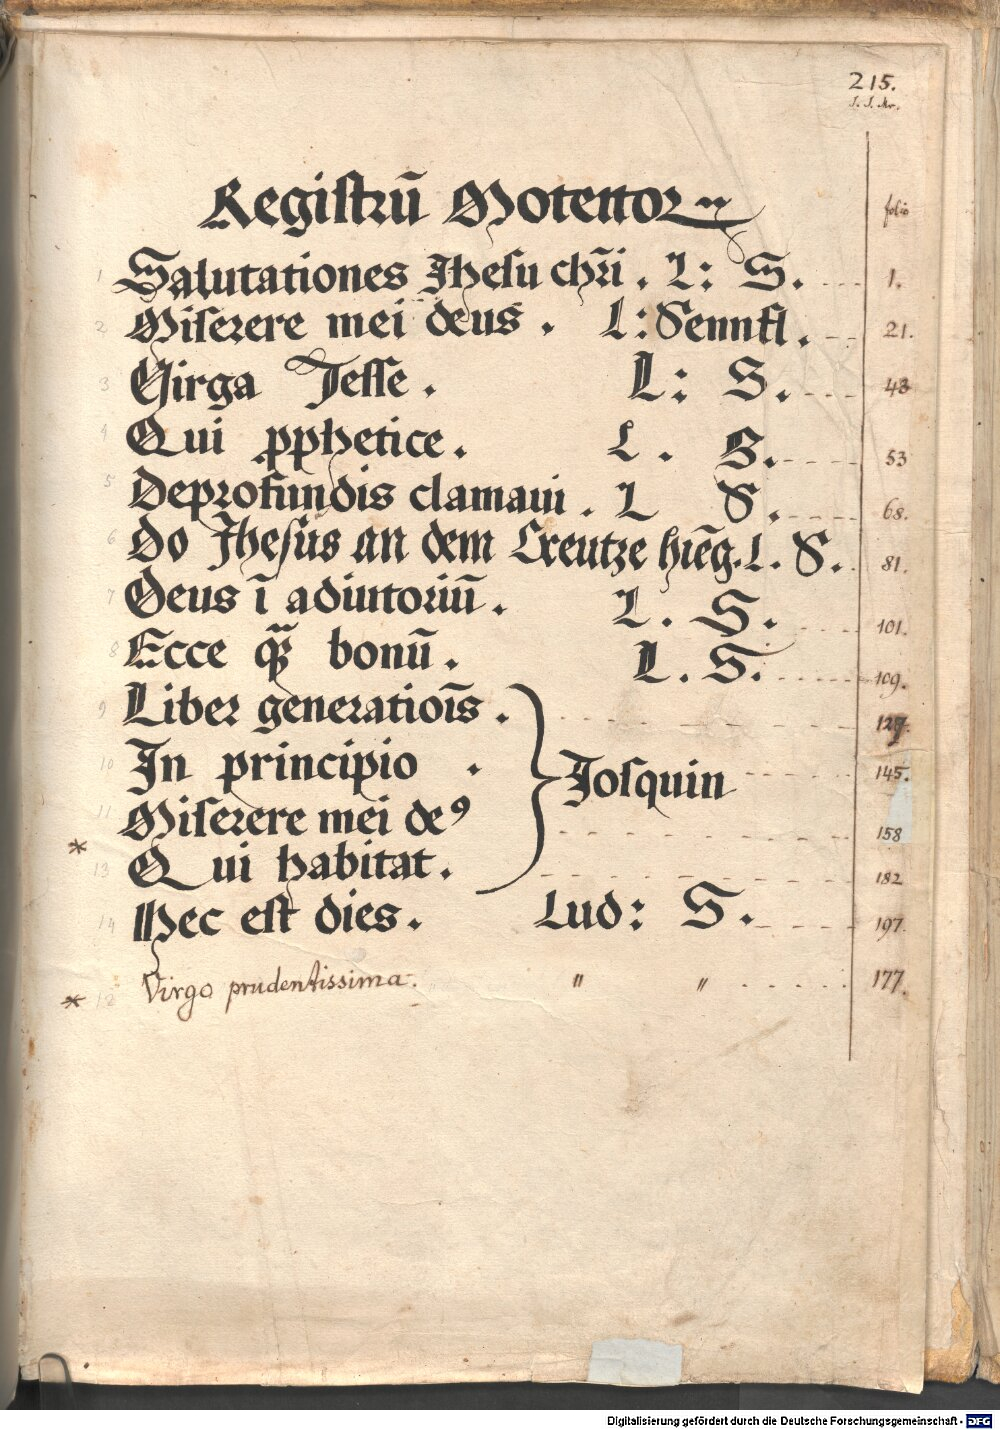 215.
J. J. Mr.
Registrū Motettor
folio
1 Salutationes Jhesu chr̄i . L: S. 1.
2 Miserere mei deus . L: Sennfl . 21.
3 Virga Jesse . L: S. 43
4 Qui pphetice . L . S. 53
5 Deprofundis clamavi . L S . 68.
6 Do Jhesus an dem Creutze hiēg. L . S . 81.
7 Deus ī adiutoriū . L . S . 101.
8 Ecce q̄ bonū . L . S . 109.
9 Liber generatioīs . 127.
10 In principio . Josquin 145.
11 Miserere mei deꝰ 158
* 13 Qui habitat . 182
14 Hec est dies . Lud: S . 197
* 12 Virgo prudentissima. " " 177.
Digitalisierung gefördert durch die Deutsche Forschungsgemeinschaft - DFG